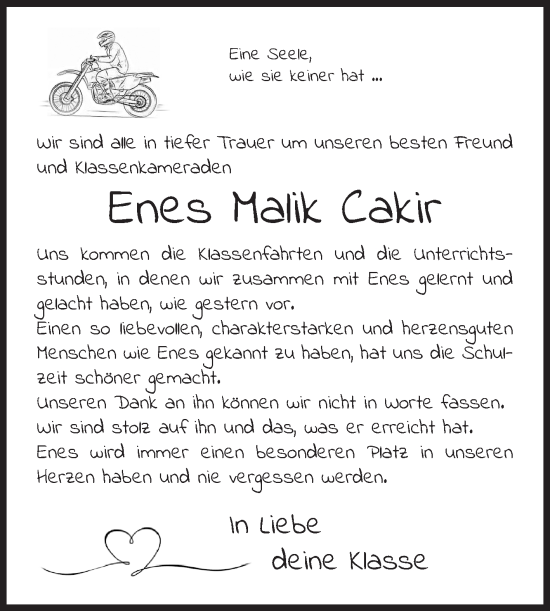 Eine Seele,
wie sie keiner hat ...
Wir sind alle in tiefer Trauer um unseren besten Freund
und Klassenkameraden
Enes Malik Cakir
Uns kommen die Klassenfahrten und die Unterrichts-
stunden, in denen wir zusammen mit Enes gelernt und
gelacht haben, wie gestern vor.
Einen so liebevollen, charakterstarken und herzensguten
Menschen wie Enes gekannt zu haben, hat uns die Schul-
zeit schöner gemacht.
Unseren Dank an ihn können wir nicht in Worte fassen.
Wir sind stolz auf ihn und das, was er erreicht hat.
Enes wird immer einen besonderen Platz in unseren
Herzen haben und nie vergessen werden.
In Liebe
deine Klasse